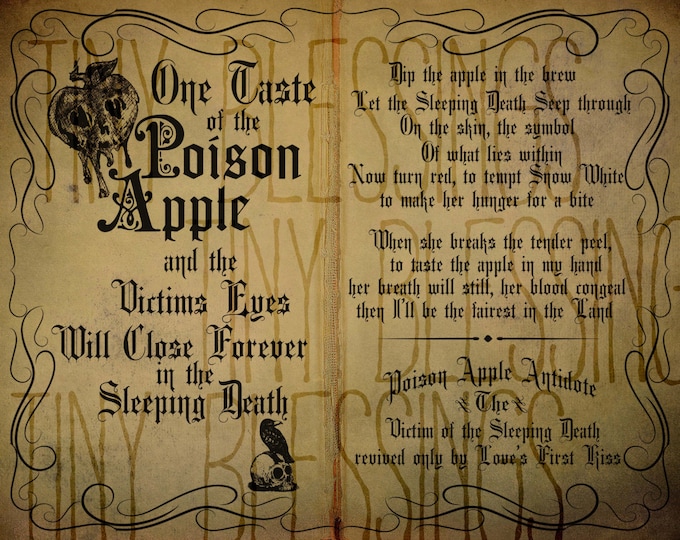 One Taste
of the
Poison
Apple
and the
Victims Eyes
Will Close Forever
in the
Sleeping Death
Dip the apple in the brew
Let the Sleeping Death Seep through
On the skin, the symbol
Of what lies within
Now turn red, to tempt Snow White
to make her hunger for a bite
When she breaks the tender peel,
to taste the apple in my hand
her breath will still, her blood congeal
then I'll be the fairest in the Land
Poison Apple Antidote
The
Victim of the Sleeping Death
revived only by Love's First Kiss
TINY BLESSINGS
TINY BLESSINGS
TINY BLESSINGS
TINY BLESSINGS